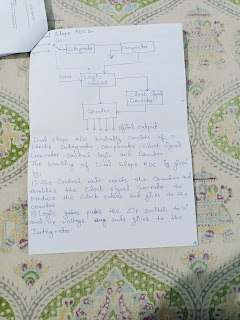 Dual Slope ADCs
Integrator
Comparator
Logic
Control
Clock signal
Generator
Counter
digital output
Dual slope ADC mainly consists of 5
blocks Integrator, comparator, clock signal
Generator, control logic and counter
The working of Dual Slope ADC is given
by
1) The control unit resets the counter and
enables the clock signal Generator to
produce the clock pulses and gives to the
counter
2) Logic gates the I/p switch to
and I/p voltage gives to the
Integrator